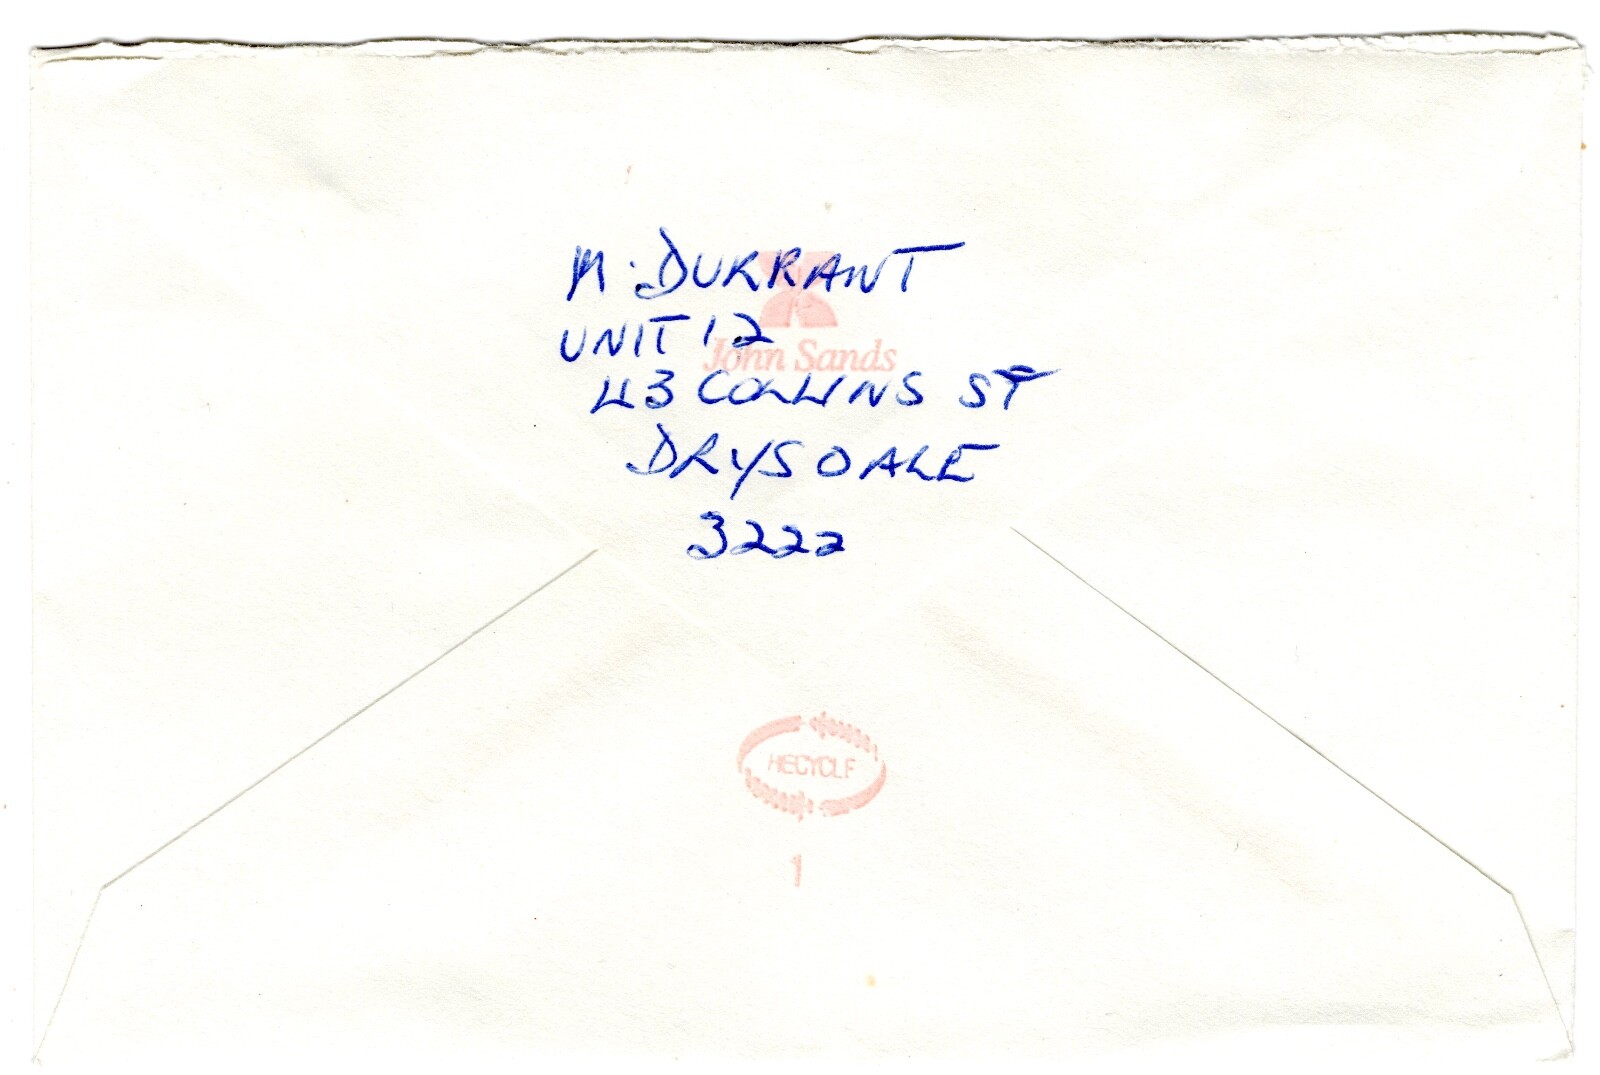 M. DURRANT
UNIT 12
John Sands
43 COLLINS ST
DRYSDALE
3222
RECYCLE
1